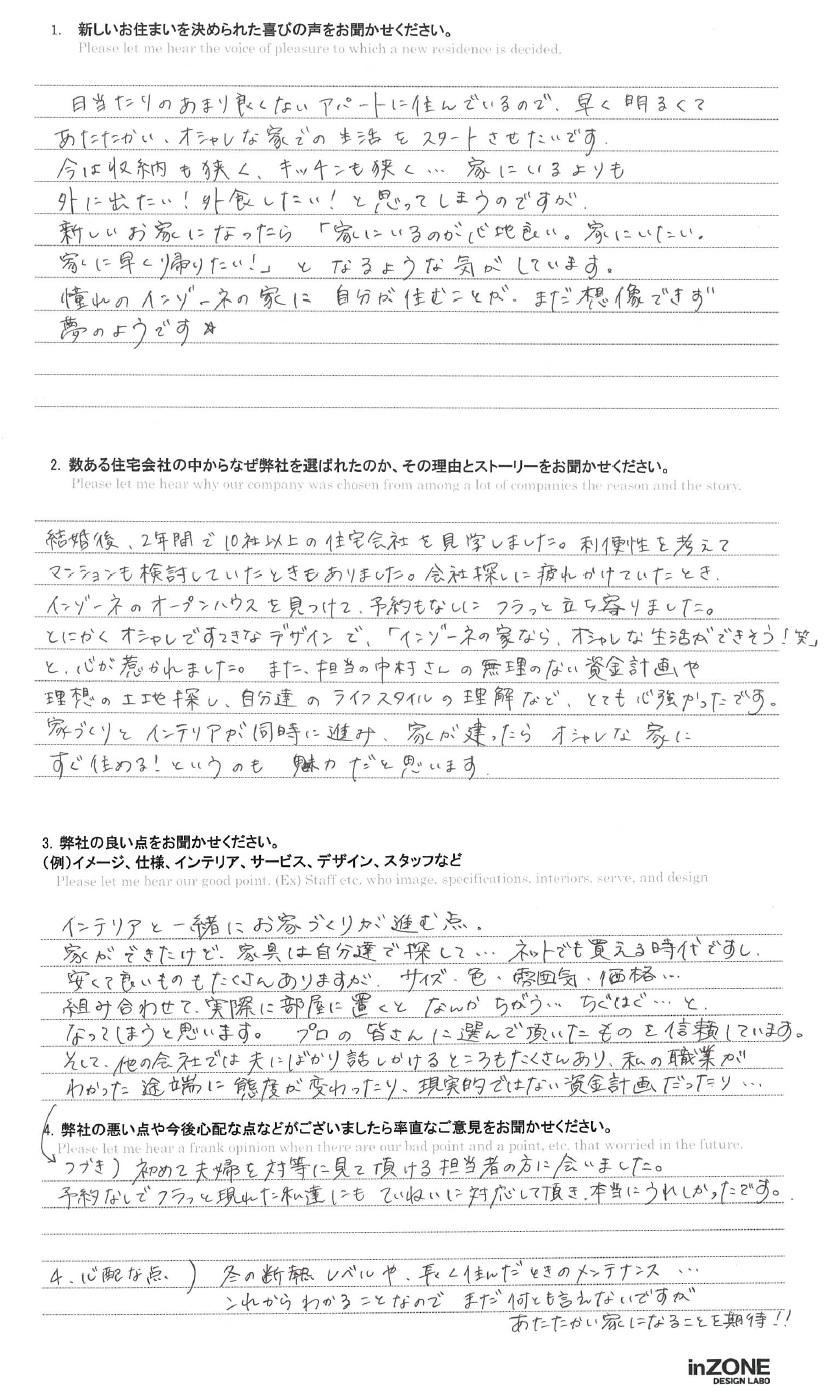 1. 新しいお住まいを決められた喜びの声をお聞かせください。
Please let me hear the voice of pleasure to which a new residence is decided.
日当たりのあまり良くないアパートに住んでいるので、早く明るくて
あたたかい、オシャレな家での生活をスタートさせたいです.
今は収納も狭く、キッチンも狭く… 家にいるよりも
外に出たい！外食したい！と思ってしまうのですが.
新しいお家になったら「家にいるのが心地良い。家にいたい。
家に早く帰りたい！」と なるような気がしています。
憧れのインゾーネの家に 自分が住むことが、まだ想像できず
夢のようです☆
2. 数ある住宅会社の中からなぜ弊社を選ばれたのか、その理由とストーリーをお聞かせください。
Please let me hear why our company was chosen from among a lot of companies the reason and the story.
結婚後、2年間で10社以上の住宅会社を見学しました。利便性を考えて
マンションも検討していたときもありました。会社探しに疲れかけていたとき、
インゾーネのオープンハウスを見つけて、予約もなしにフラっと立ち寄りました。
とにかくオシャレですてきなデザインで、「インゾーネの家なら、オシャレな生活ができそう！笑」
と、心が惹かれました。また、担当の中村さんの無理のない資金計画や
理想の土地探し、自分達のライフスタイルの理解など、とても心強かったです。
家づくりとインテリアが同時に進み、家が建ったらオシャレな家に
すぐ住める！というのも 魅力だと思います.
3. 弊社の良い点をお聞かせください。
（例）イメージ、仕様、インテリア、サービス、デザイン、スタッフなど
Please let me hear our good point. (Ex) Staff etc. who image, specifications, interiors, serve, and design
インテリアと一緒にお家づくりが進む点。
家ができたけど、家具は自分達で探して… ネットでも買える時代ですし、
安くて良いものもたくさんありますが、サイズ・色・雰囲気・価格…
組み合わせて、実際に部屋に置くと なんかちがう… ちぐはぐ… と、
なってしまうと思います。 プロの皆さんに選んで頂いたものを信頼しています。
そして、他の会社では夫にばかり話しかけるところもたくさんあり、私の職業が
わかった途端に態度が変わったり、現実的ではない資金計画だったり…
4. 弊社の悪い点や今後心配な点などがございましたら率直なご意見をお聞かせください。
Please let me hear a frank opinion when there are our bad point and a point, etc. that worried in the future.
つづき）初めて夫婦を対等に見て頂ける担当者の方に会いました。
予約なしでフラっと現れた私達にも ていねいに対応して頂き、本当にうれしかったです。
4. 心配な点）冬の断熱レベルや、長く住んだときのメンテナンス…
これからわかることなので まだ何とも言えないですが
あたたかい家になることを期待!!
inZONE
DESIGN LABO